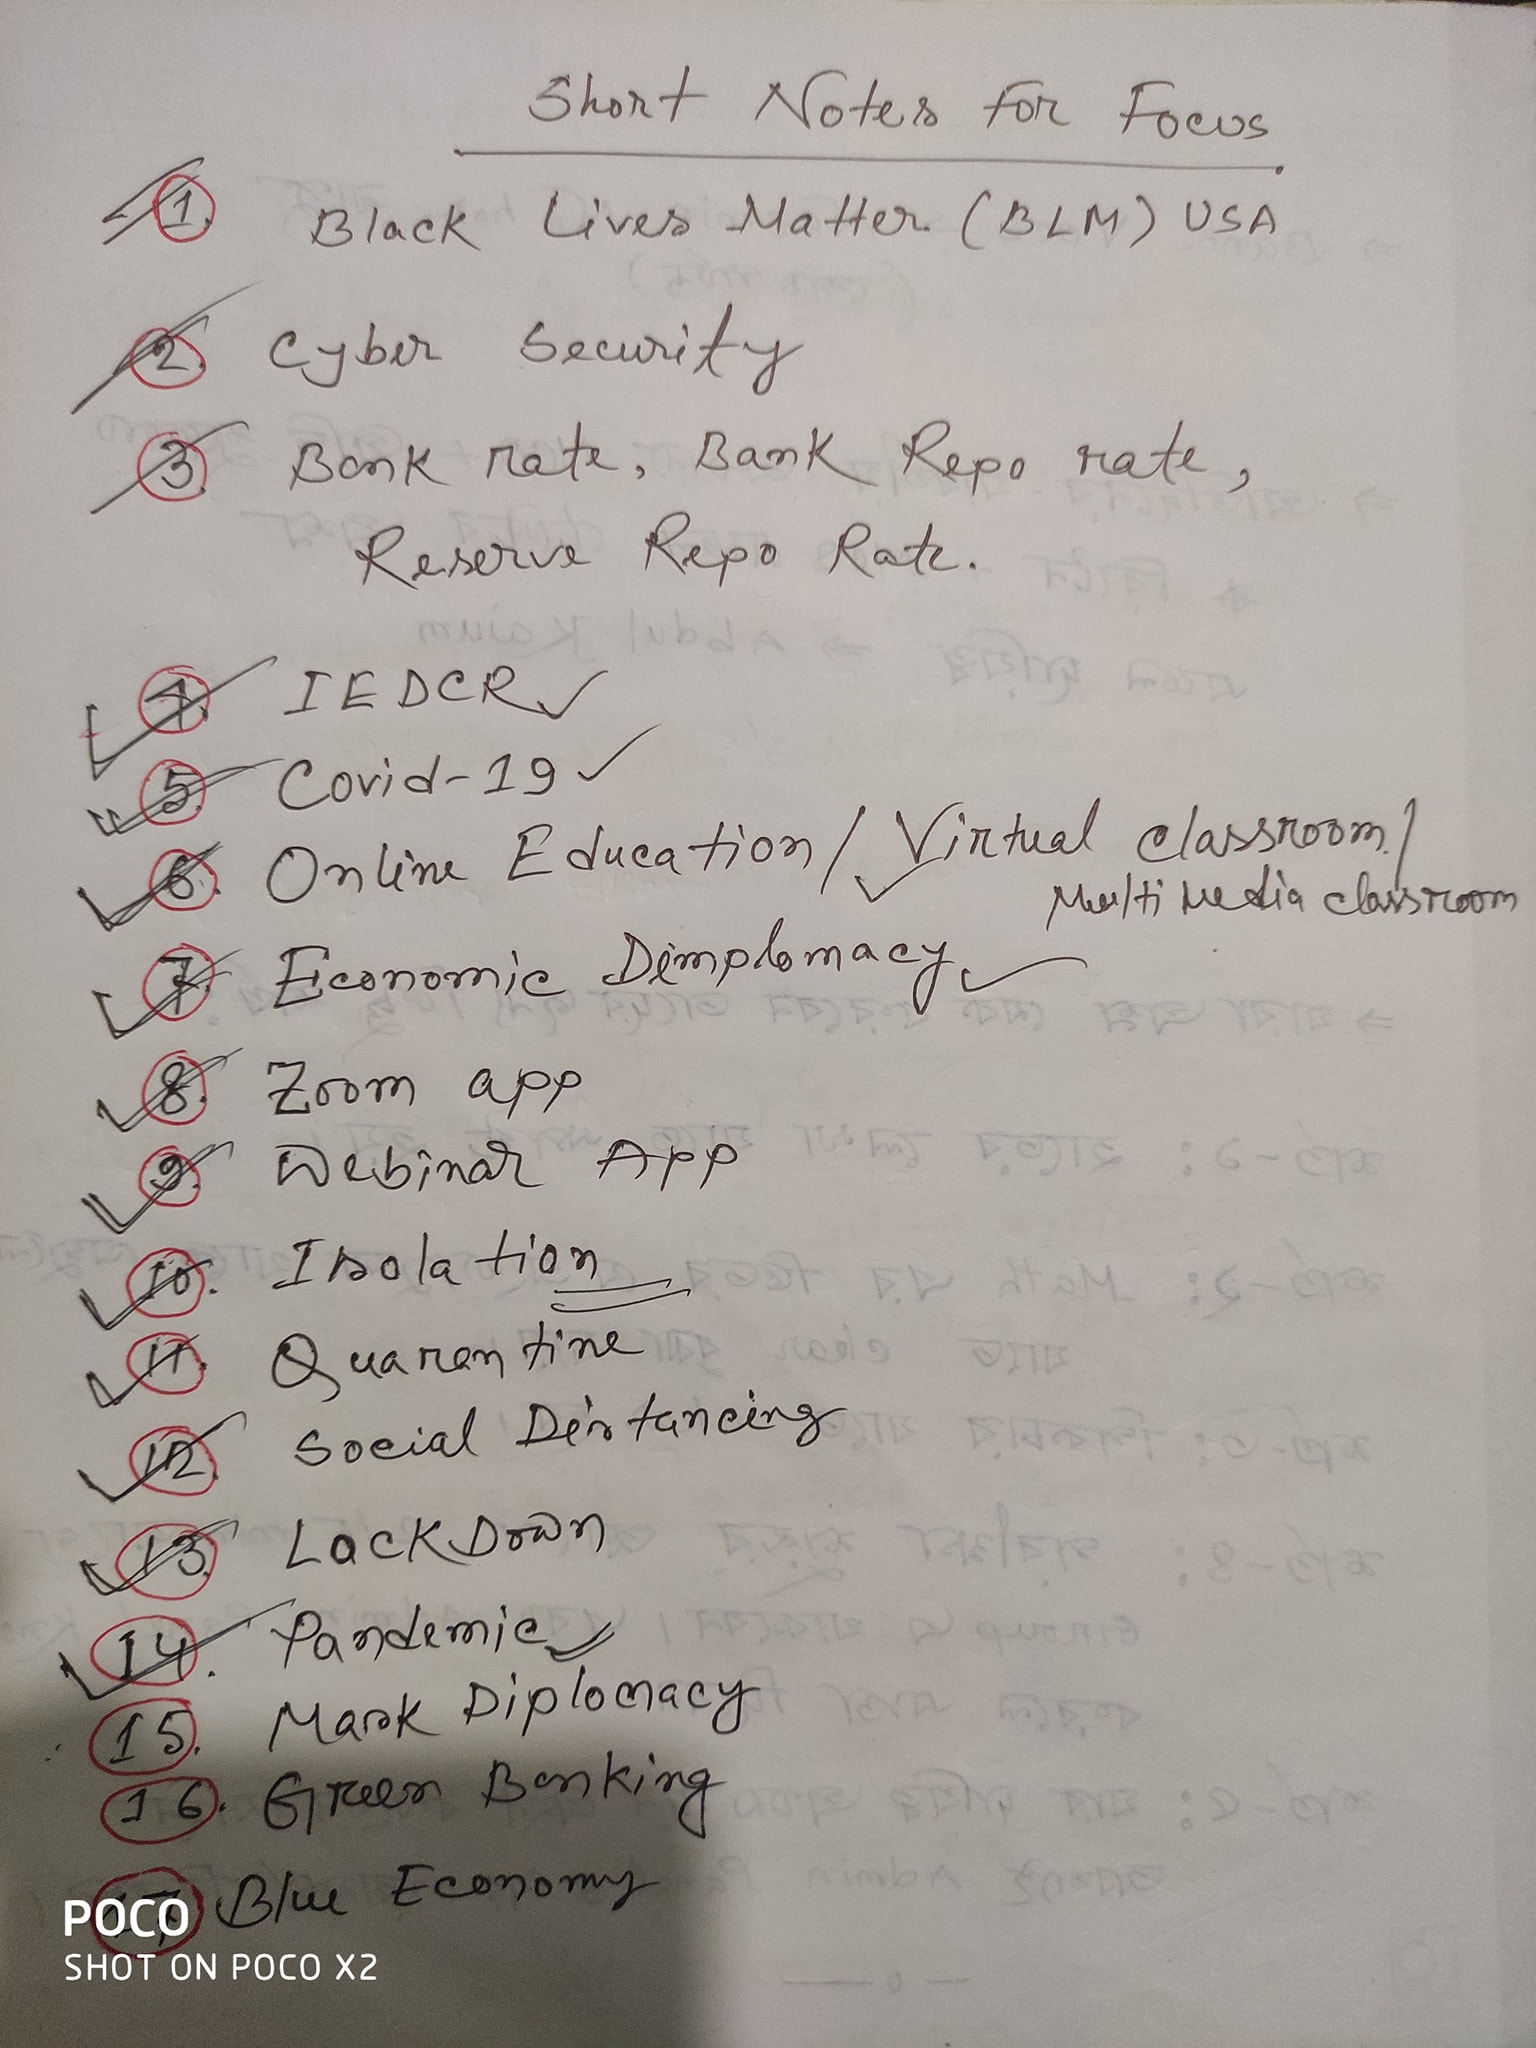 Short Notes For Focus
1. Black Lives Matter (BLM) USA
2. Cyber Security
3. Bank rate, Bank Repo rate,
Reserve Repo Rate.
4. IEDCR
5. Covid-19
6. Online Education/ Virtual classroom/
Multi Media classroom
7. Economic Dimplomacy
8. Zoom app
9. Webinar App
10. Isolation
11. Quarentine
12. Social Distancing
13. LockDown
14. Pandemic
15. Mask Diplomacy
16. Green Banking
17. Blue Economy
POCO
SHOT ON POCO X2